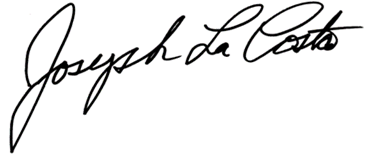 Joseph La Costa